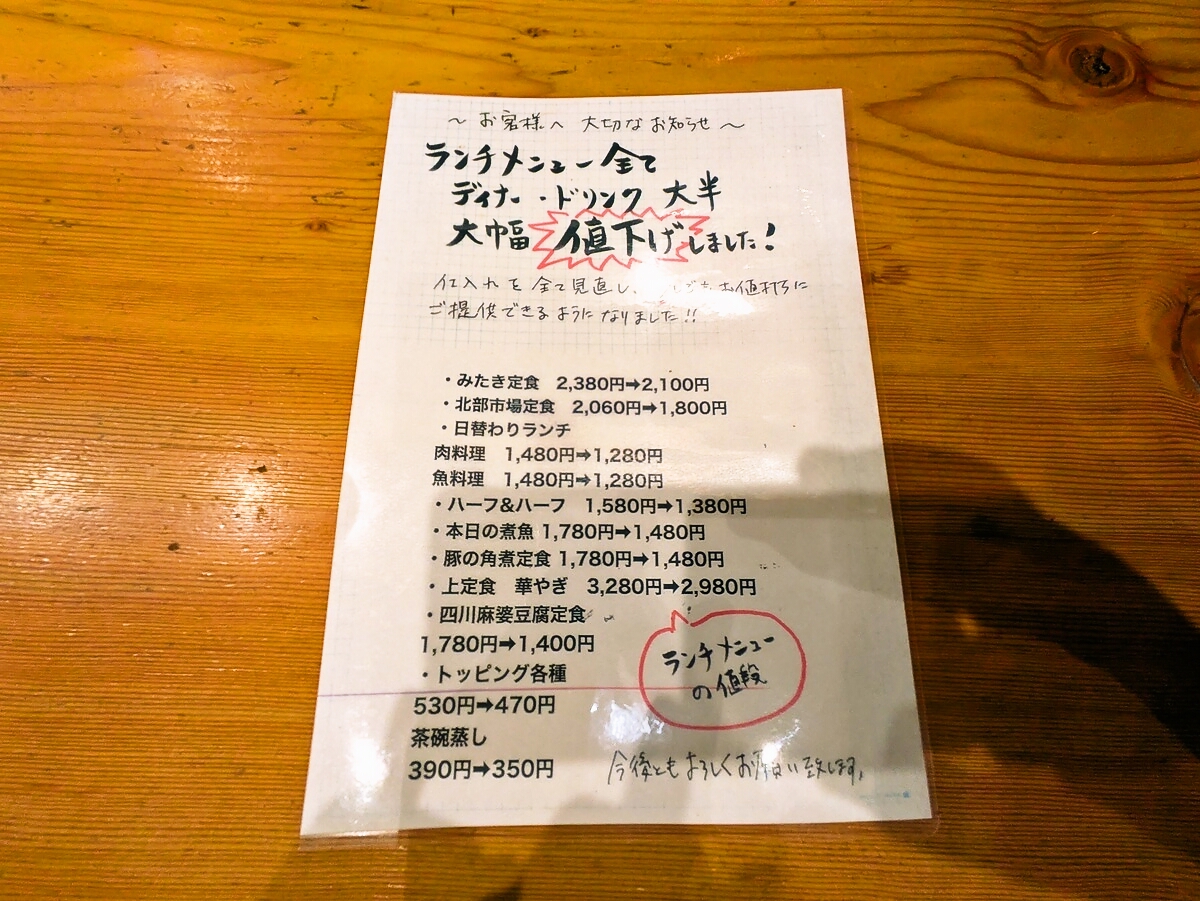 〜 お客様へ 大切なお知らせ 〜
ランチメニュー全て
ディナー・ドリンク 大半
大幅 値下げしました!
仕入れを全て見直し、お値打ちに
ご提供できるようになりました!!
・みたき定食 2,380円➡2,100円
・北部市場定食 2,060円➡1,800円
・日替わりランチ
肉料理 1,480円➡1,280円
魚料理 1,480円➡1,280円
・ハーフ&ハーフ 1,580円➡1,380円
・本日の煮魚 1,780円➡1,480円
・豚の角煮定食 1,780円➡1,480円
・上定食 華やぎ 3,280円➡2,980円
・四川麻婆豆腐定食
1,780円➡1,400円
・トッピング各種
530円➡470円
茶碗蒸し
390円➡350円
ランチメニュー
の値段
今後ともよろしくお願い致します。